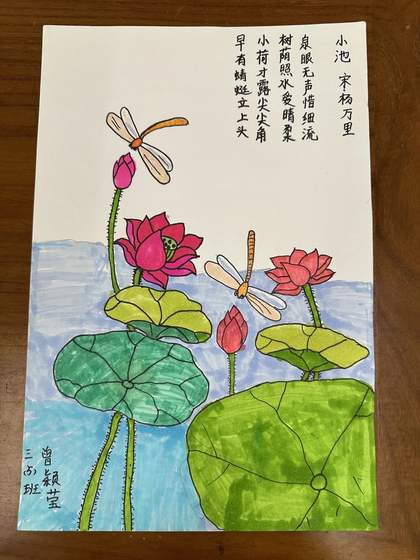 小池 宋·杨万里
泉眼无声惜细流
树荫照水爱晴柔
小荷才露尖尖角
早有蜻蜓立上头
曾颖莹
三(5)班